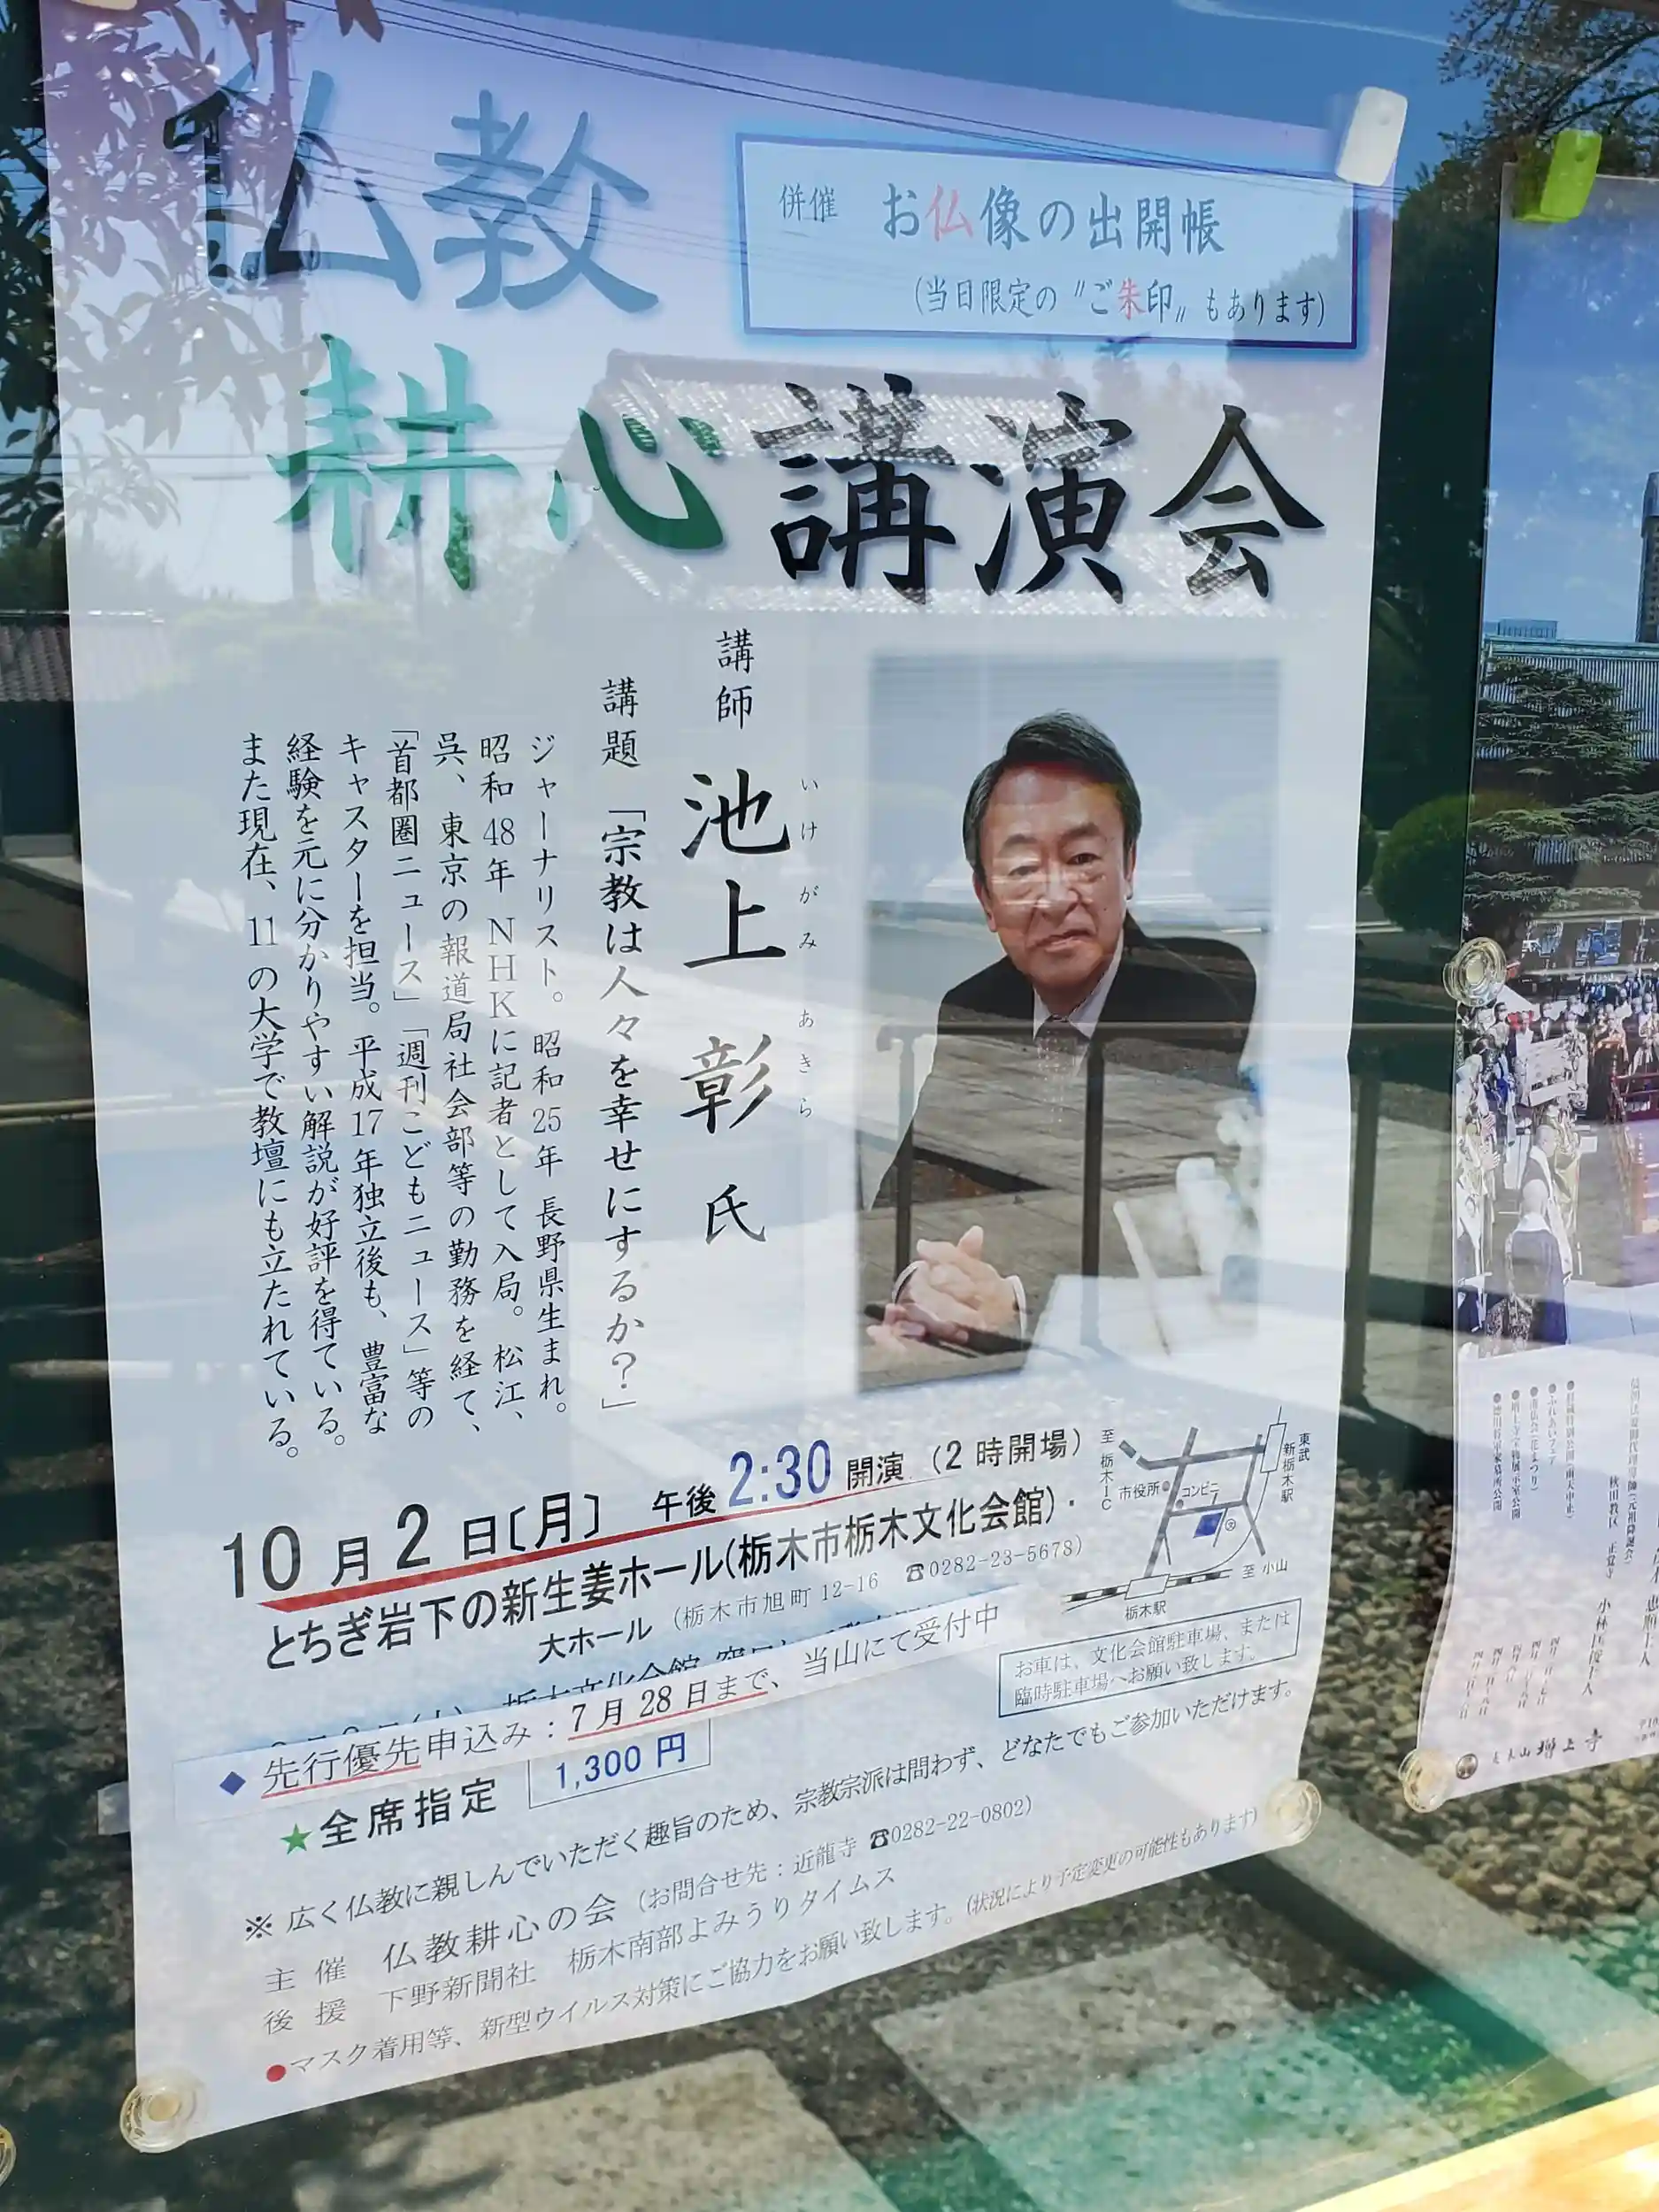 仏教
耕心講演会
併催 お仏像の出開帳
(当日限定の〝ご朱印〟もあります)
講師 池上 彰 氏
いけがみ あきら
講題 「宗教は人々を幸せにするか?」
ジャーナリスト。昭和25年 長野県生まれ。
昭和48年 NHKに記者として入局。松江、
呉、東京の報道局社会部等の勤務を経て、
「首都圏ニュース」「週刊こどもニュース」等の
キャスターを担当。平成17年独立後も、豊富な
経験を元に分かりやすい解説が好評を得ている。
また現在、11の大学で教壇にも立たれている。
10月2日〔月〕 午後2:30開演 (2時開場)
とちぎ岩下の新生姜ホール(栃木市栃木文化会館)・
大ホール (栃木市旭町12-16 ☎0282-23-5678)
至 栃木IC
市役所
コンビニ
東武
新栃木駅
至 小山
栃木駅
お車は、文化会館駐車場、または
臨時駐車場へお願い致します。
◆先行優先申込み:7月28日まで、当山にて受付中
★全席指定 1,300円
※広く仏教に親しんでいただく趣旨のため、宗教宗派は問わず、どなたでもご参加いただけます。
主催 仏教耕心の会 (お問合せ先:近龍寺 ☎0282-22-0802)
後援 下野新聞社 栃木南部よみうりタイムス
●マスク着用等、新型ウイルス対策にご協力をお願い致します。(状況により予定変更の可能性もあります)
増上寺